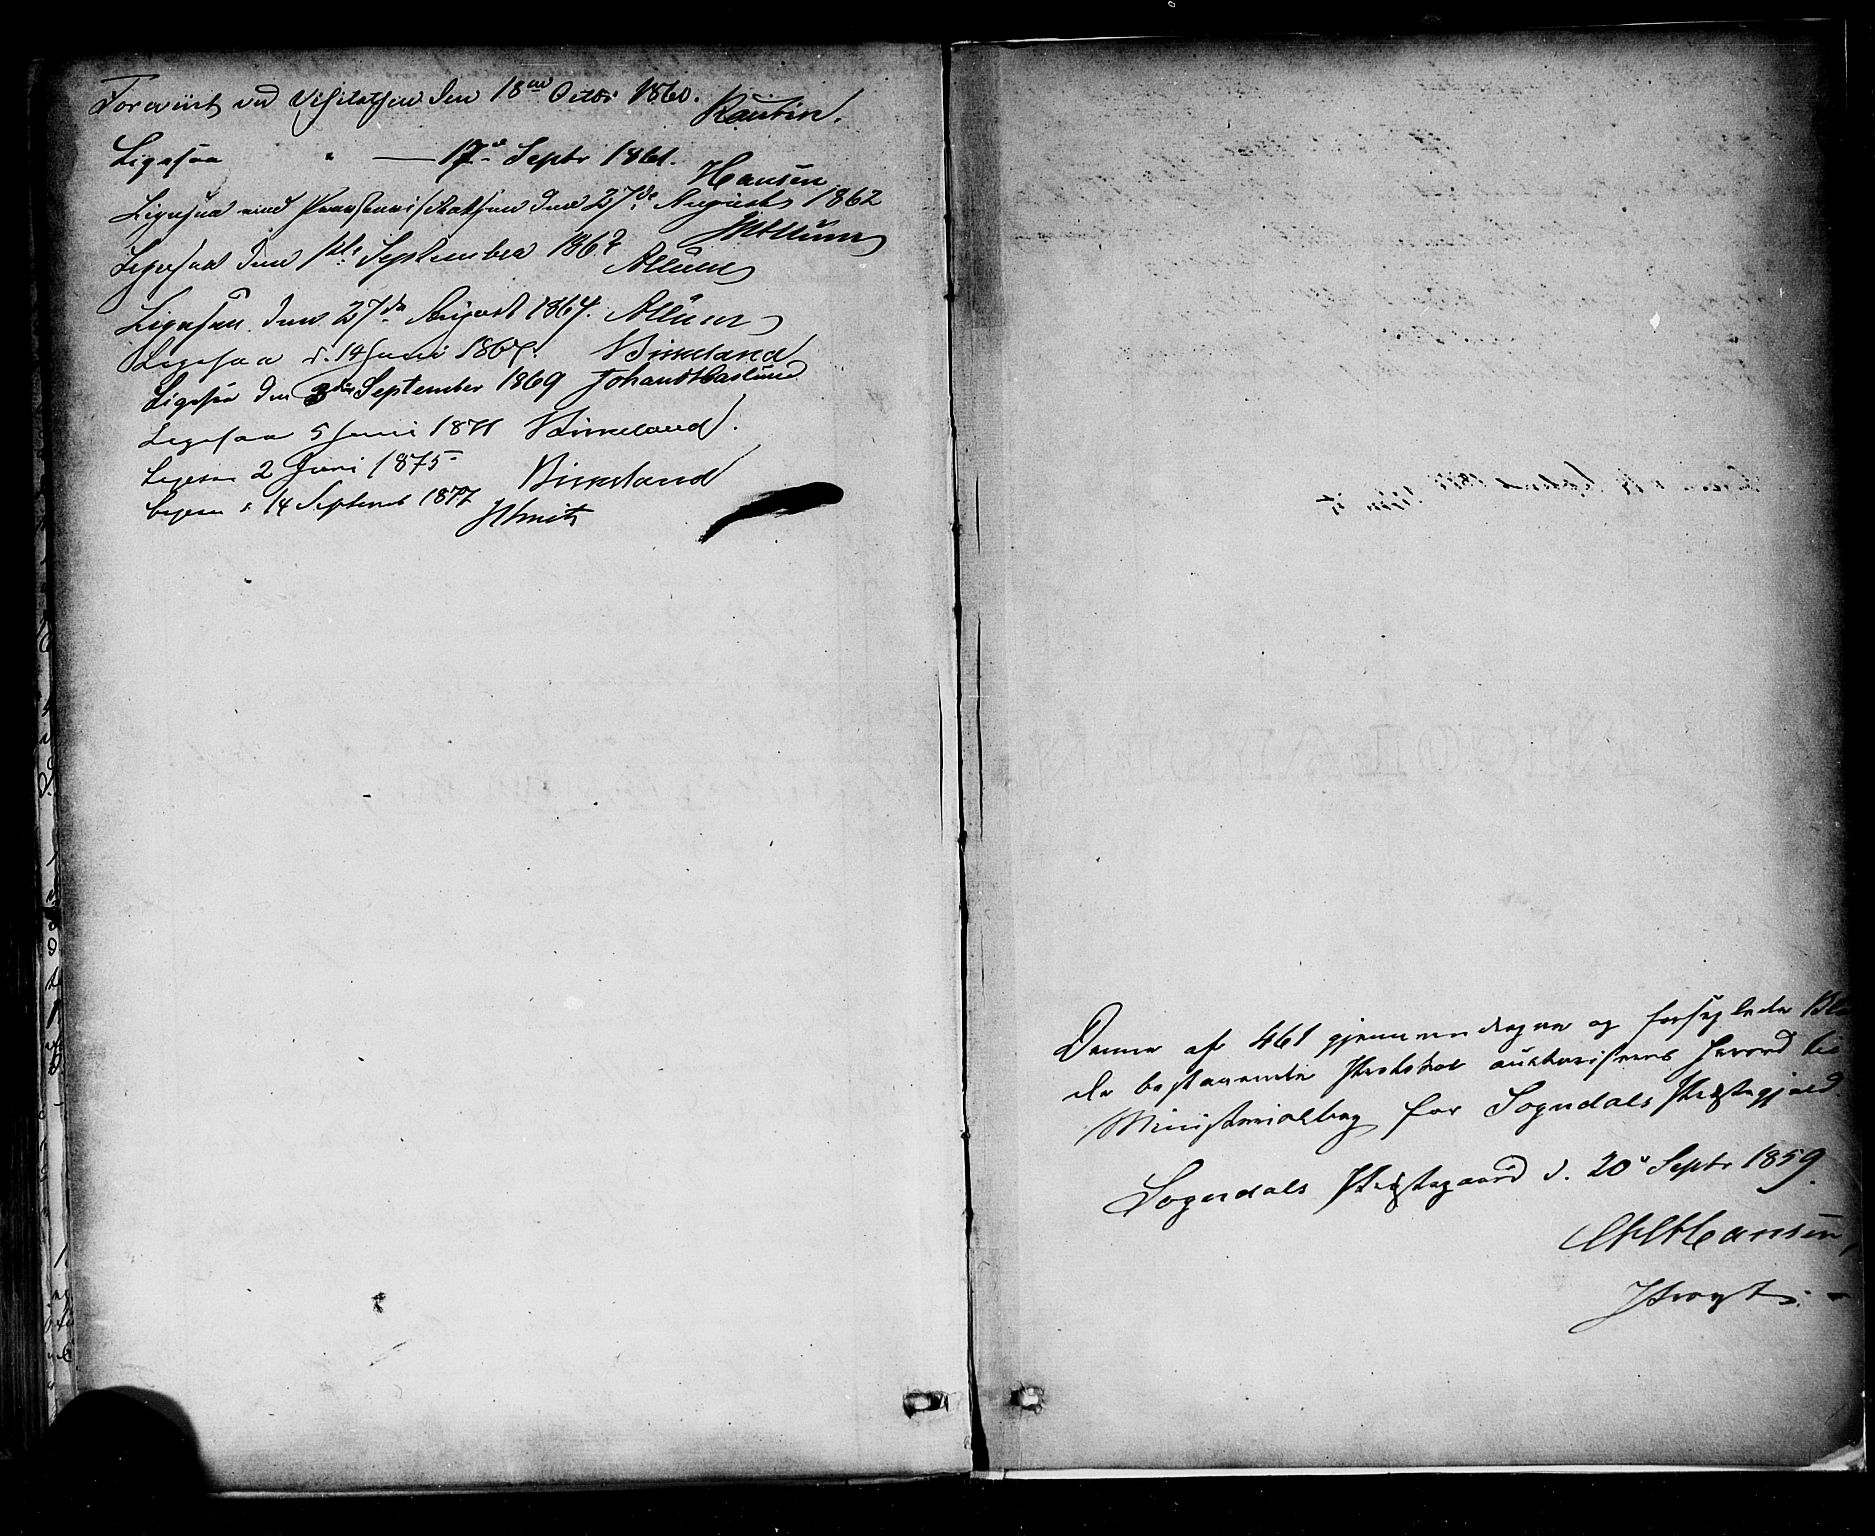 Foreviist ved Visitatsen den 18de Octbr 1860.
Ligesaa " — 17de Septr 1861.
Hansen
Ligesaa ved Provstevisitatsen den 27de August 1862
Ligesaa den September 1863
Ligesaa den 27de August 1864.
Ligesaa d. 14 Juni 1867. Birkeland
Ligesaa den 3die September 1869 Johan Haslund
Ligesaa 5 Juni 1871 Birkeland.
Ligesaa 2 Juni 1875 Birkeland
Ligesaa d. 14 September 1877 JSmitt
Denne af 461 gjennemdragne og forseglede Bla
de bestaaende Protokol authoriseres herved til
Ministerialbog for Sogndals Præstegjæld.
Sogndals Præstegaard d. 20de Septr 1859.
Hansen,
Provst. -